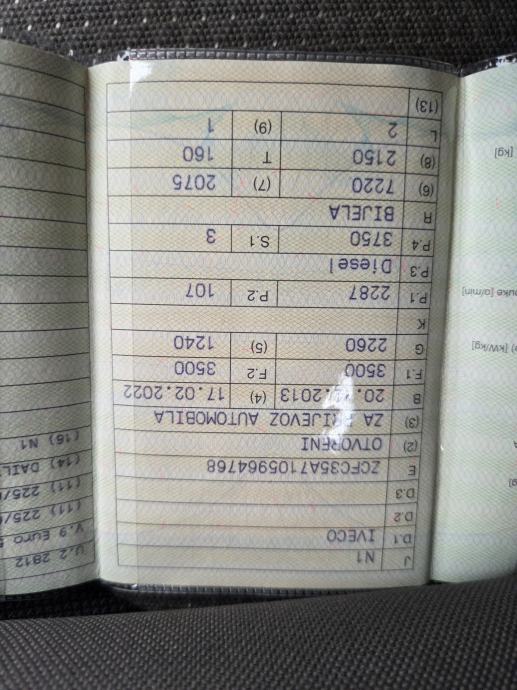 J N1
D.1 IVECO
D.2
D.3
E ZCFC35A7105964768
(2) OTVORENI
(3) ZA AUTOMOBILA
B (4) 17.02.2022
F.1 3500 F.2 3500
G 2260 (5) 1240
K
P.1 2287 P.2 107
P.3 Diesel
P.4 3750 S.1 3
R BIJELA
(6) 7220 (7) 2075
(8) 2150 T 160
L 2 (9) 1
(13)
U.2 2812
V.9 Euro 5
(11) 225/
(11) 225/
(14) DAIL
(16) N1
[kW/kg]
[o/min]
[kg]